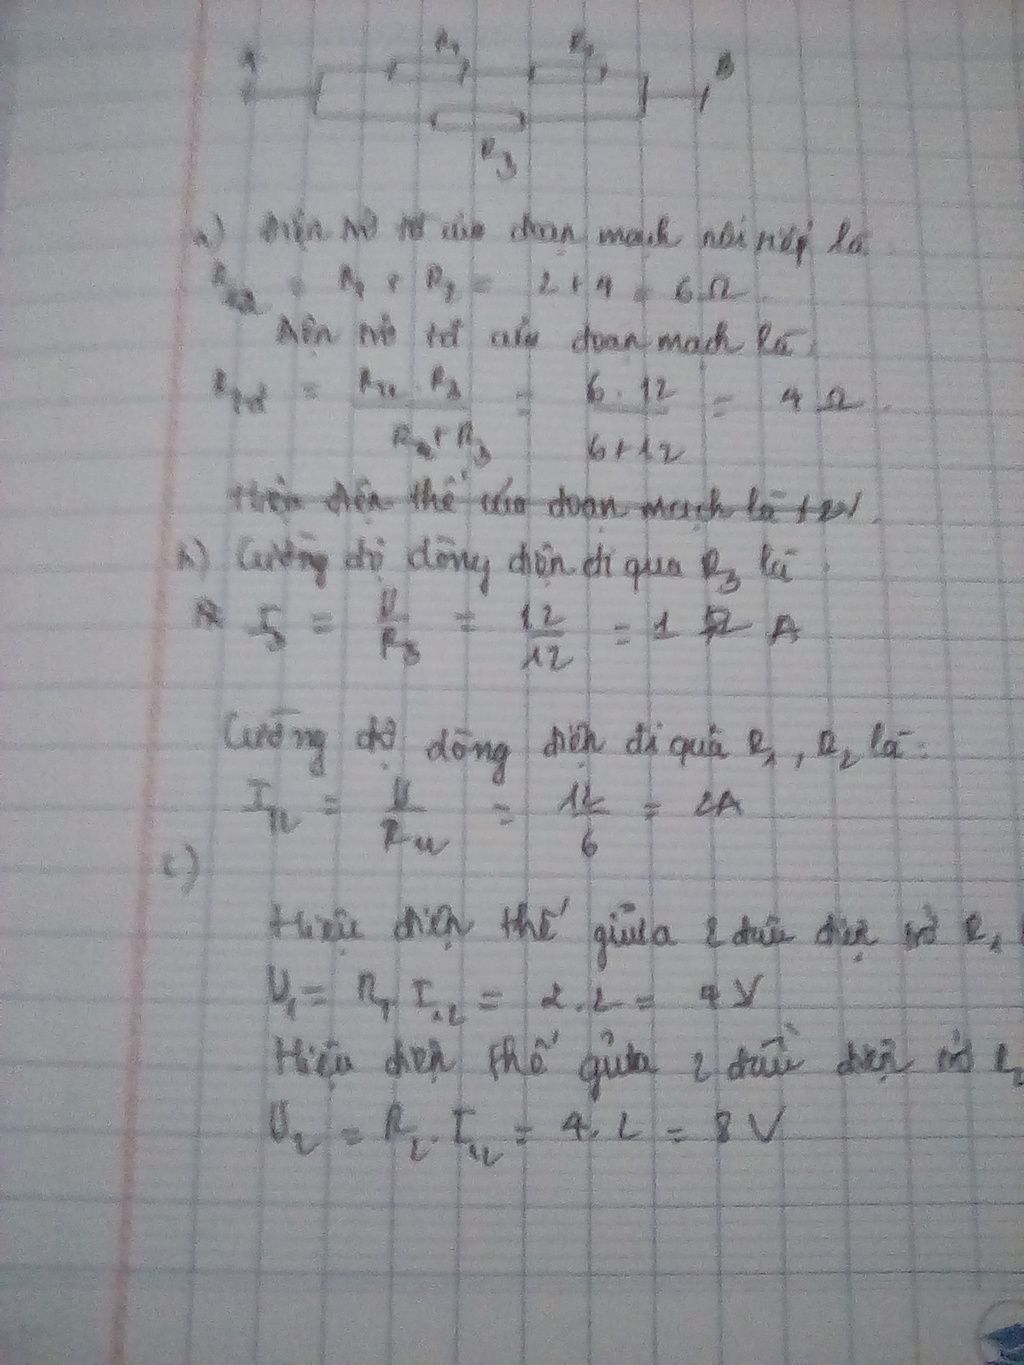 R₁ R₂
A B
R₃
a) Điện trở tđ của đoạn mạch nối tiếp là
R₁₂ = R₁ + R₂ = 2 + 4 = 6 Ω.
Điện trở tđ của đoạn mạch là:
Rtđ = R₁₂ . R₃ / R₁₂ + R₃ = 6 . 12 / 6 + 12 = 4 Ω.
Hiệu điện thế của đoạn mạch là 12V.
b) Cường độ dòng điện đi qua R₃ là
I₃ = U / R₃ = 12 / 12 = 1 A
Cường độ dòng điện đi qua R₁, R₂ là:
I₁₂ = U / R₁₂ = 12 / 6 = 2A
c)
Hiệu điện thế giữa 2 đầu điện trở R₁
U₁ = R₁ I₁₂ = 2.2 = 4 V
Hiệu điện thế giữa 2 đầu điện trở R₂
U₂ = R₂ . I₁₂ = 4.2 = 8 V